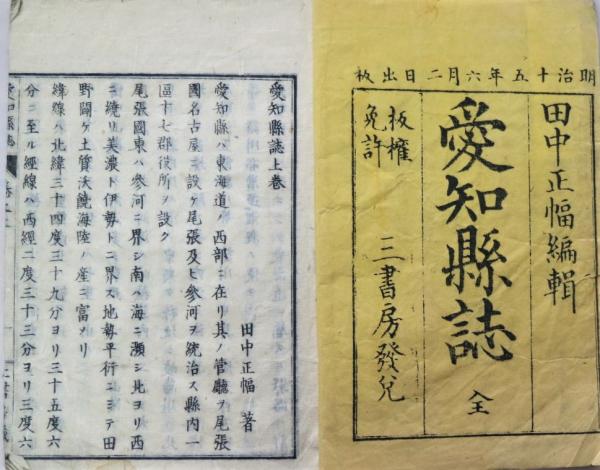 明治十五年六月二日出板
田中正幅編輯
愛知縣誌 全
板權免許
三書房發兌
愛知縣誌上卷
田中正幅 著
愛知縣ハ東海道ノ西部ニ在リ其ノ管廳ヲ尾張
國名古屋ニ設ケ尾張及ヒ參河ヲ統治ス縣内一
區十七郡役所ヲ設ク
尾張國東ハ參河ニ界シ南ハ海ニ瀕シ北ヨリ西
ニ繞リ美濃ト伊勢トニ界ス地勢平衍ニシテ田
野闢ケ土質沃饒海陸ノ產ニ富メリ
緯線ハ北緯三十四度三十九分ヨリ三十五度六
分ニ至ル經線ハ西經二度三十三分ヨリ三度六
愛知縣誌